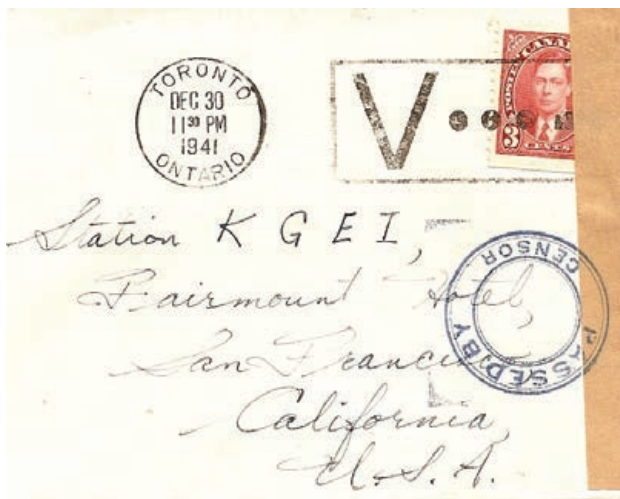 TORONTO
DEC 30
11 30 PM
1941
ONTARIO
V
POSTES CANA
3
CENTS
Station K G E I,
Fairmount Hotel,
San Francisco
California,
U.S.A.
PASSED BY
CENSOR